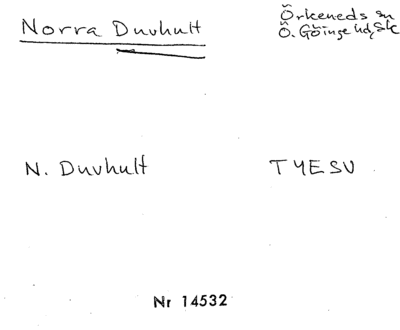 Norra Duvhult
Örkeneds sn
Ö. Göinge hd, Sk
N. Duvhult
TYESU
Nr 14532